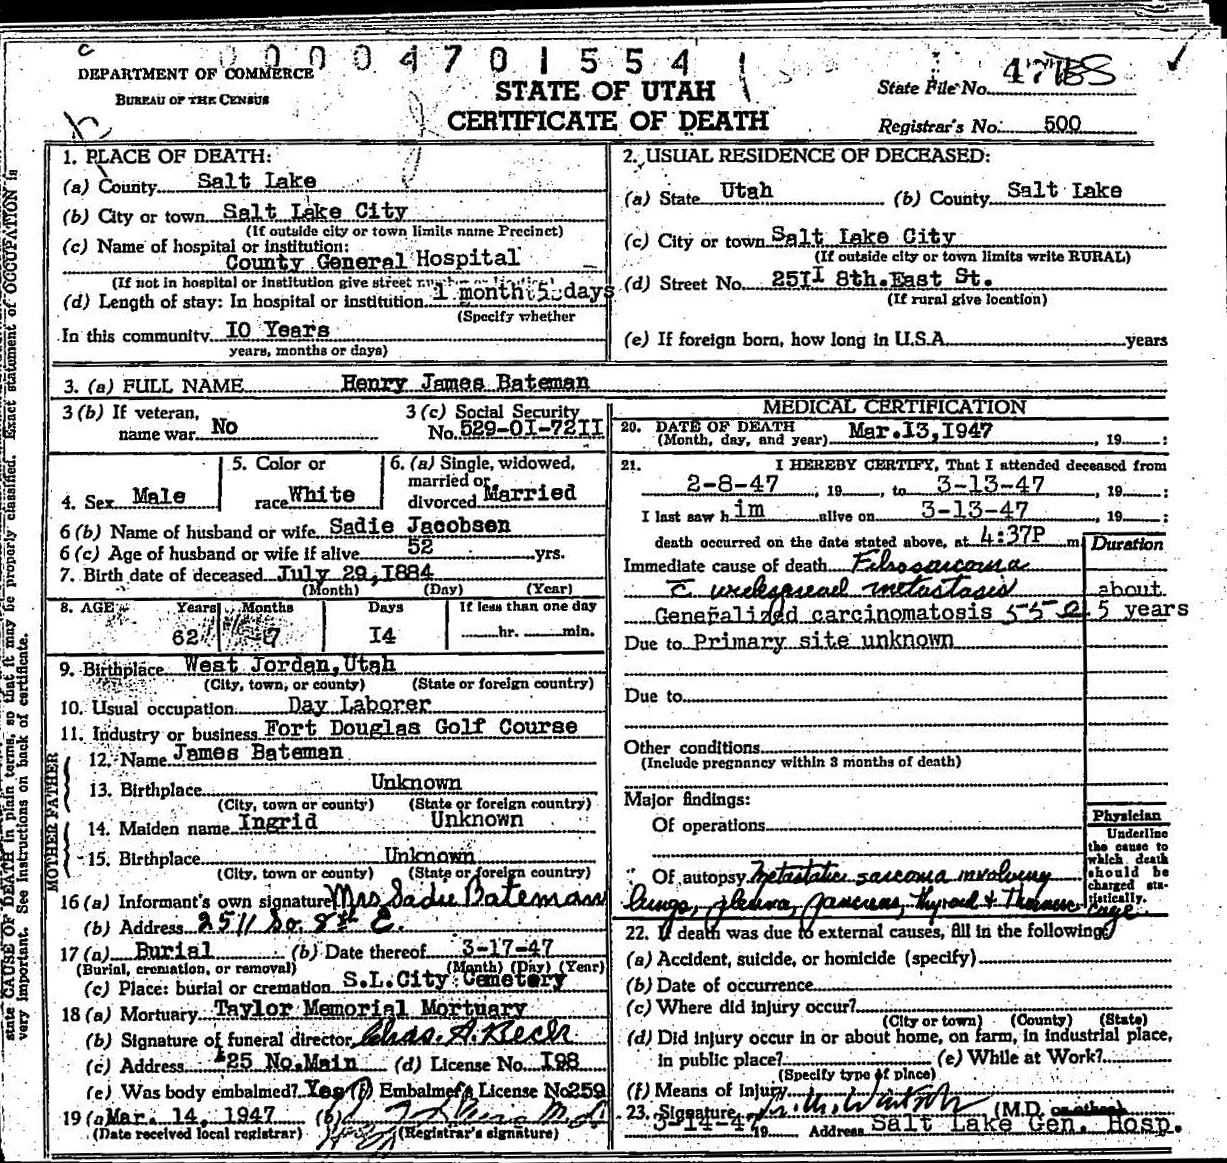 0 0 0 4 7 0 1 5 5 4
DEPARTMENT OF COMMERCE
BUREAU OF THE CENSUS
STATE OF UTAH
CERTIFICATE OF DEATH
State File No.
Registrar's No. 500
state CAUSE OF DEATH in plain terms, so that it may be properly classified. Exact statement of OCCUPATION is
very important. See instructions on back of certificate.
1. PLACE OF DEATH:
(a) County Salt Lake
(b) City or town Salt Lake City
(If outside city or town limits name Precinct)
(c) Name of hospital or institution:
County General Hospital
(If not in hospital or institution give street
(d) Length of stay: In hospital or institution 1 month 5 days
(Specify whether
In this community I0 Years
years, months or days)
2. USUAL RESIDENCE OF DECEASED:
(a) State Utah (b) County Salt Lake
(c) City or town Salt Lake City
(If outside city or town limits write RURAL)
(d) Street No. 25II 8th.East St.
(If rural give location)
(e) If foreign born, how long in U.S.A. years
3. (a) FULL NAME Henry James Bateman
3 (b) If veteran,
name war No
3 (c) Social Security
No. 529-0I-72II
4. Sex Male
5. Color or
race White
6. (a) Single, widowed,
married or
divorced Married
6 (b) Name of husband or wife Sadie Jacobsen
6 (c) Age of husband or wife if alive 52 yrs.
7. Birth date of deceased July 29,I884
(Month) (Day) (Year)
8. AGE Years Months Days If less than one day
62 7 I4 hr. min.
9. Birthplace West Jordan,Utah
(City, town, or county) (State or foreign country)
10. Usual occupation Day Laborer
11. Industry or business Fort Douglas Golf Course
FATHER
12. Name James Bateman
13. Birthplace Unknown
(City, town or county) (State or foreign country)
MOTHER
14. Maiden name Ingrid Unknown
15. Birthplace Unknown
(City, town or county) (State or foreign country)
16 (a) Informant's own signature Mrs Sadie Bateman
(b) Address 2511 So. 8th E.
17 (a) Burial (b) Date thereof 3-17-47
(Burial, cremation, or removal) (Month) (Day) (Year)
(c) Place: burial or cremation S.L.City Cemetery
18 (a) Mortuary Taylor Memorial Mortuary
(b) Signature of funeral director Chas. A. Beck
(c) Address 25 No.Main (d) License No. I98
(e) Was body embalmed? Yes (f) Embalmer's License No 259
19 (a) Mar. 14, 1947 (b)
(Date received local registrar) (Registrar's signature)
MEDICAL CERTIFICATION
20. DATE OF DEATH
(Month, day, and year) Mar.13,1947, 19 :
21. I HEREBY CERTIFY, That I attended deceased from
2-8-47, 19 , to 3-13-47, 19 ;
I last saw him alive on 3-13-47, 19 ;
death occurred on the date stated above, at 4:37P m. Duration
Immediate cause of death Fibrosarcoma
c̄ widespread metastasis about
Generalized carcinomatosis 55 5 years
Due to Primary site unknown
Due to
Other conditions
(Include pregnancy within 3 months of death)
Major findings:
Of operations
Of autopsy Metastatic sarcoma involving
lungs, pleura, pancreas, thyroid & Thoracic cage
Physician
Underline
the cause to
which death
should be
charged sta-
tistically.
22. If death was due to external causes, fill in the following:
(a) Accident, suicide, or homicide (specify)
(b) Date of occurrence
(c) Where did injury occur?
(City or town) (County) (State)
(d) Did injury occur in or about home, on farm, in industrial place,
in public place? (e) While at Work?
(Specify type of place)
(f) Means of injury
23. Signature (M.D. or other)
3-14-47 19 Address Salt Lake Gen. Hosp.